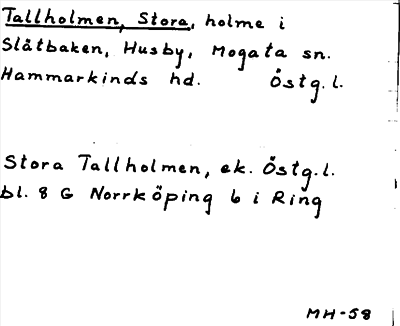 Tallholmen, Stora, holme i
Slåtbaken, Husby, Mogata sn.
Hammarkinds hd. Östg.l.
Stora Tallholmen, ek. Östg.l.
bl. 8 G Norrköping 6 i Ring
MH-58